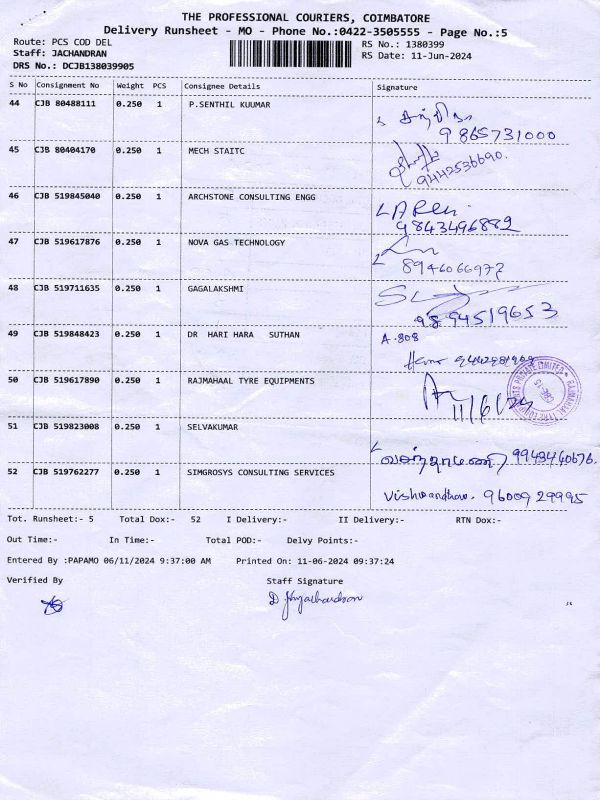 THE PROFESSIONAL COURIERS, COIMBATORE
Delivery Runsheet - MO - Phone No.:0422-3505555 - Page No.:5
Route: PCS COD DEL
RS No.: 1380399
Staff: JACHANDRAN
RS Date: 11-Jun-2024
DRS No.: DCJB138039905
S No Consignment No Weight PCS Consignee Details Signature
44 CJB 80488111 0.250 1 P.SENTHIL KUUMAR
9865731000
45 CJB 80404170 0.250 1 MECH STAITC
9442536690.
46 CJB 519845040 0.250 1 ARCHSTONE CONSULTING ENGG
9843496882
47 CJB 519617876 0.250 1 NOVA GAS TECHNOLOGY
8946066972
48 CJB 519711635 0.250 1 GAGALAKSHMI
9894519653
49 CJB 519848423 0.250 1 DR HARI HARA SUTHAN A-808
50 CJB 519617890 0.250 1 RAJMAHAAL TYRE EQUIPMENTS
11/6/24
51 CJB 519823008 0.250 1 SELVAKUMAR
9943460676.
52 CJB 519762277 0.250 1 SIMGROSYS CONSULTING SERVICES
96009 29995
Tot. Runsheet:- 5 Total Dox:- 52 I Delivery:- II Delivery:- RTN Dox:-
Out Time:- In Time:- Total POD:- Delvy Points:-
Entered By :PAPAMO 06/11/2024 9:37:00 AM Printed On: 11-06-2024 09:37:24
Verified By Staff Signature